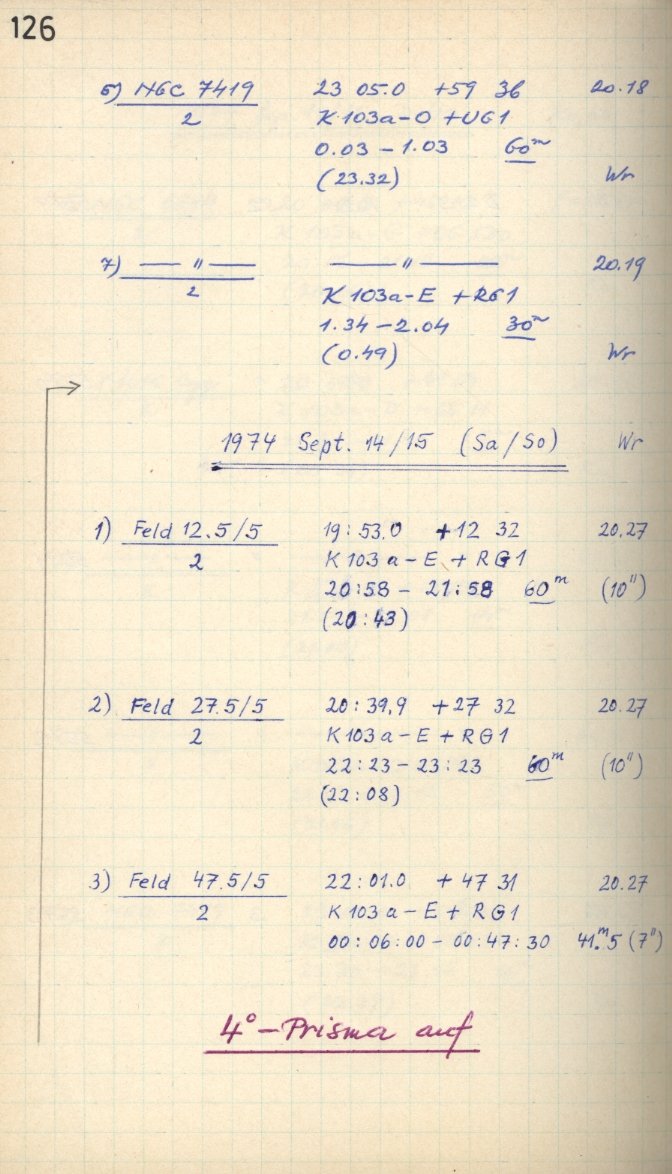 126
6) NGC 7419 23 05.0 +59 36 20.18
2 K 103a-O + UG1
0.03 - 1.03 60m
(23.32) Wr
7) — " — — " — 20.19
2 K 103a-E + RG1
1.34 - 2.04 30m
(0.49) Wr
1974 Sept. 14/15 (Sa/So) Wr
1) Feld 12.5/5 19:53.0 +12 32 20.27
2 K 103a-E + RG1
20:58 - 21:58 60m (10")
(20:43)
2) Feld 27.5/5 20:39,9 +27 32 20.27
2 K 103a-E + RG1
22:23 - 23:23 60m (10")
(22:08)
3) Feld 47.5/5 22:01.0 +47 31 20.27
2 K 103a-E + RG1
00:06:00 - 00:47:30 41m.5 (7")
4°-Prisma auf